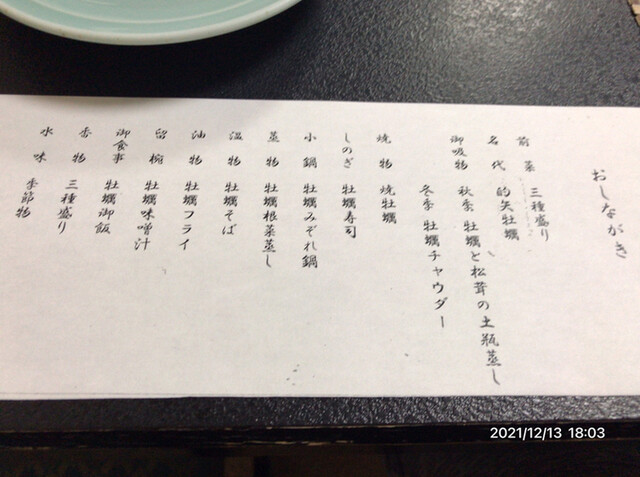 おしながき
前菜 三種盛り
名代 的矢牡蠣
御吸物 秋季 牡蠣と松茸の土瓶蒸し
冬季 牡蠣チャウダー
焼物 焼牡蠣
しのぎ 牡蠣寿司
小鍋 牡蠣みぞれ鍋
蒸物 牡蠣根菜蒸し
温物 牡蠣そば
油物 牡蠣フライ
留椀 牡蠣味噌汁
御食事 牡蠣御飯
香物 三種盛り
水味 季節物
2021/12/13 18:03